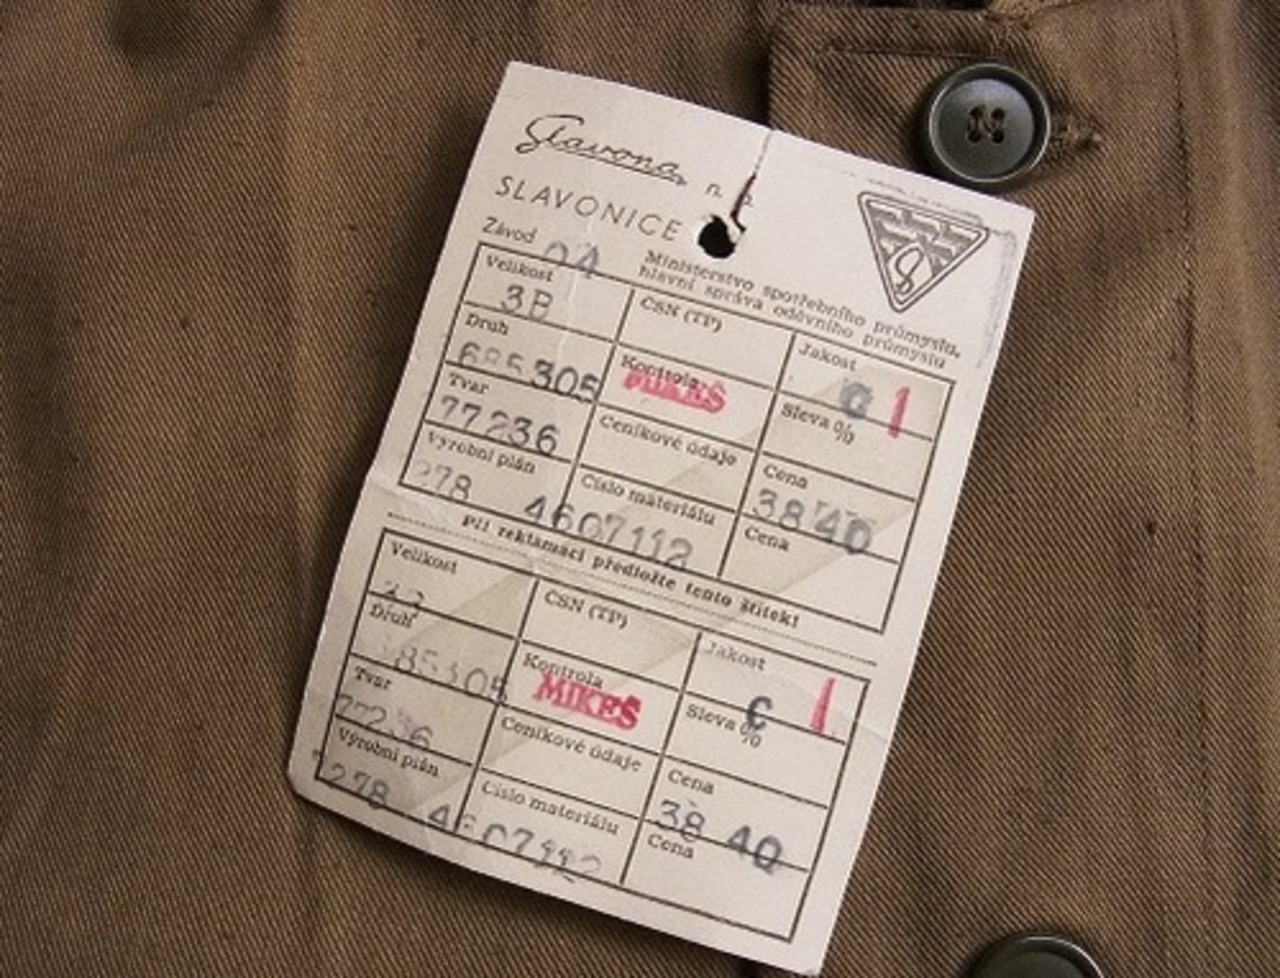 Slavona n. p.
SLAVONICE
Závod 04
Ministerstvo spotřebního průmyslu,
hlavní správa oděvního průmyslu
Velikost
3B
ČSN (TP)
Jakost
1
Druh
685305
Kontrola
MIKEŠ
Sleva %
Tvar
77236
Ceníkové údaje
Cena
38 40
Výrobní plán
278
Číslo materiálu
4607112
Cena
Při reklamaci předložte tento štítek!
Velikost
ČSN (TP)
Jakost
1
Druh
85305
Kontrola
MIKEŠ
Sleva %
Tvar
77236
Ceníkové údaje
Cena
38 40
Výrobní plán
278
Číslo materiálu
4607112
Cena